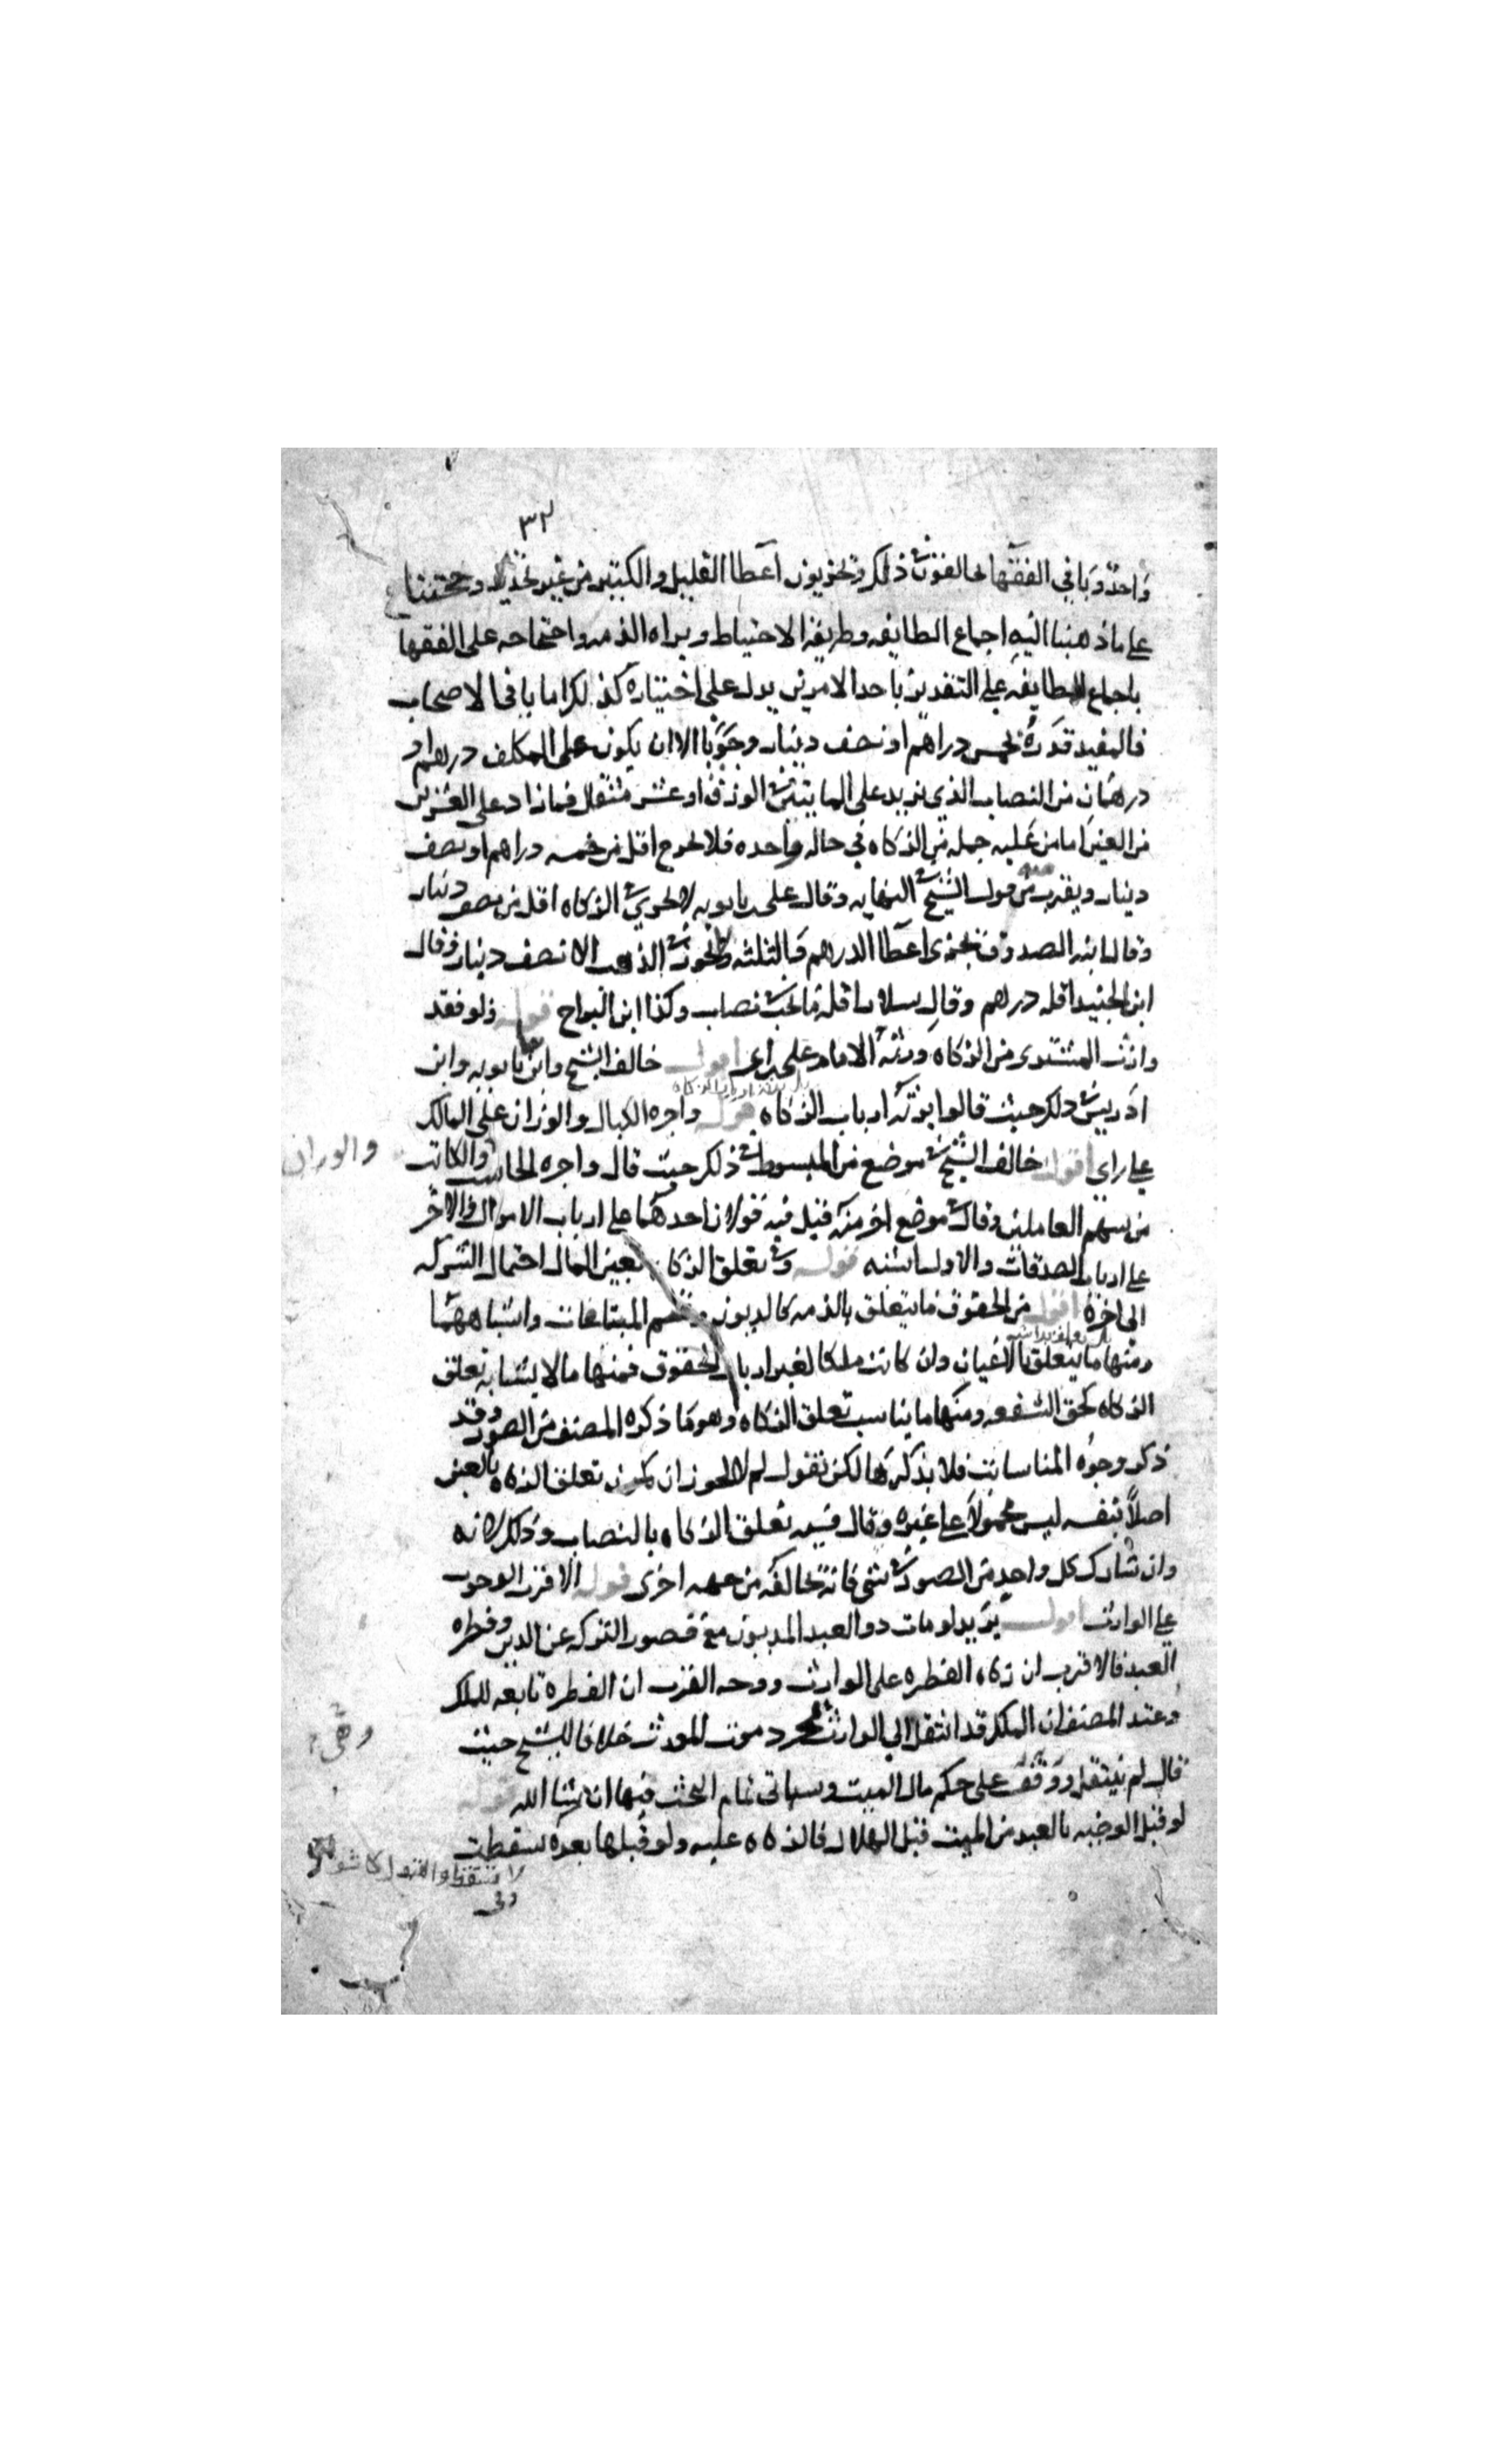 ٣٢
واحد وباقي الفقها يخالفون في ذلك ويجيزون اعطا القليل والكثير من غير تحديد وحجتنا
على ما ذهبنا اليه اجماع الطايفه وطريقة الاحتياط وبراه الذمه واحتجاجه على الفقها
باجماع الطايفه على التقدير باحد الامرين يدل على اختياره كذلك اما باقي الاصحاب
فالمفيد قدره بخمس دراهم او نصف دينار وجوبا الا ان يكون على المكلف درهم او
درهمان من النصاب الذي يزيد على المايتين في الورق او عشر مثقال فما زاد على العشرين
من العين اما من عليه جمله من الزكاه في حاله واحده فلا يخرج اقل من خمسه دراهم او نصف
دينار ويقرب منه قول الشيخ في النهايه وقال علي بن بابويه لا يجزي في الزكاه اقل من نصف دينار
وقال ابنه الصدوق يجزى اعطا الدرهم والثلثه ولا يجوز في الذهب الا نصف دينار وقال
ابن الجنيد اقله درهم وقال سلار اقله ما يجب في نصاب وكذا ابن البراج قوله ولو فقد
وارث المشتري من الزكاه ورثه الامام على راي اقول خالف الشيخ وابنا بابويه وابن
بل يرثه ارباب الزكاه
ادريس في ذلك حيث قالوا يرثه ارباب الزكاه قوله واجره الكيال والوزان على المالك
والوزان
على راي اقول خالف الشيخ في موضع من المبسوط في ذلك حيث قال واجره الحاسب والكاتب
من سهم العاملين وقال في موضع اخر منه قيل فيه قولان احدهما على ارباب الاموال والاخر
على ارباب الصدقات والاول اشبه قوله وفي تعلق الزكاه بعين المال احتمال الشركه
الى اخره اقول من الحقوق ما يتعلق بالذمه كالديون وقيم المبتاعات واشباههما
ومنها ما يتعلق بالاعيان وان كانت ملكا لغير ارباب الحقوق فمنها ما لا يشابه تعلق
الزكاه كحق الشفعه ومنها ما يناسب تعلق الزكاه وهو ما ذكره المصنف من الصور وقد
ذكر وجوه المناسبات فلا نذكرها لكن نقول لم لا يجوز ان يكون تعلق الزكاه بالعين
اصلا بنفسه ليس محمولا على غيره وقال قسيمه تعلق الزكاه بالنصاب وذلك لانه
وان شارك كل واحد من الصور في شي فانه يخالفه من جهه اخرى قوله الاقرب الوجوب
على الوارث اقول يريد لو مات ذو العبد المديون مع قصور التركه عن الدين وفطره
العبد فالاقرب ان زكاه الفطره على الوارث ووجه القرب ان الفطره تابعه للملك
وعند المصنف ان الملك قد انتقل الى الوارث بمجرد موت المورث خلافا للشيخ حيث
قال لم ينتقل ووقف على حكم مال الميت وسياتي تمام البحث فيها ان شا الله قوله
لو قبل الوصيه بالعبد من الميت قبل الهلال فالزكاه عليه ولو قبلها بعده سقطت